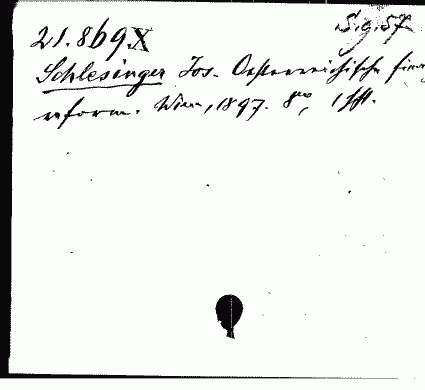 21.869 X S.g.57
Schlesinger Jos. Oesterreichische
reform. Wien, 1897. 8°, 1 Hft.